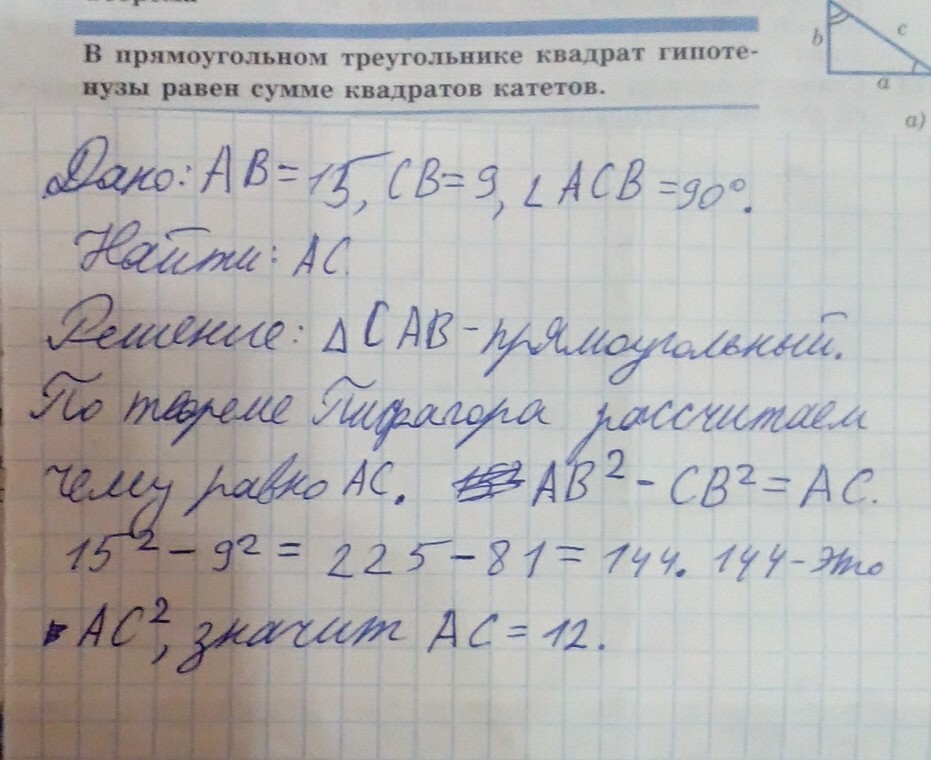 В прямоугольном треугольнике квадрат гипоте-
нузы равен сумме квадратов катетов.
b
c
a
а)
Дано: AB = 15, CB = 9, ∠ ACB = 90°.
Найти: AC.
Решение: Δ CAB - прямоугольный.
По теореме Пифагора рассчитаем
чему равно AC. AB² - CB² = AC.
15² - 9² = 225 - 81 = 144. 144 - это
AC², значит AC = 12.